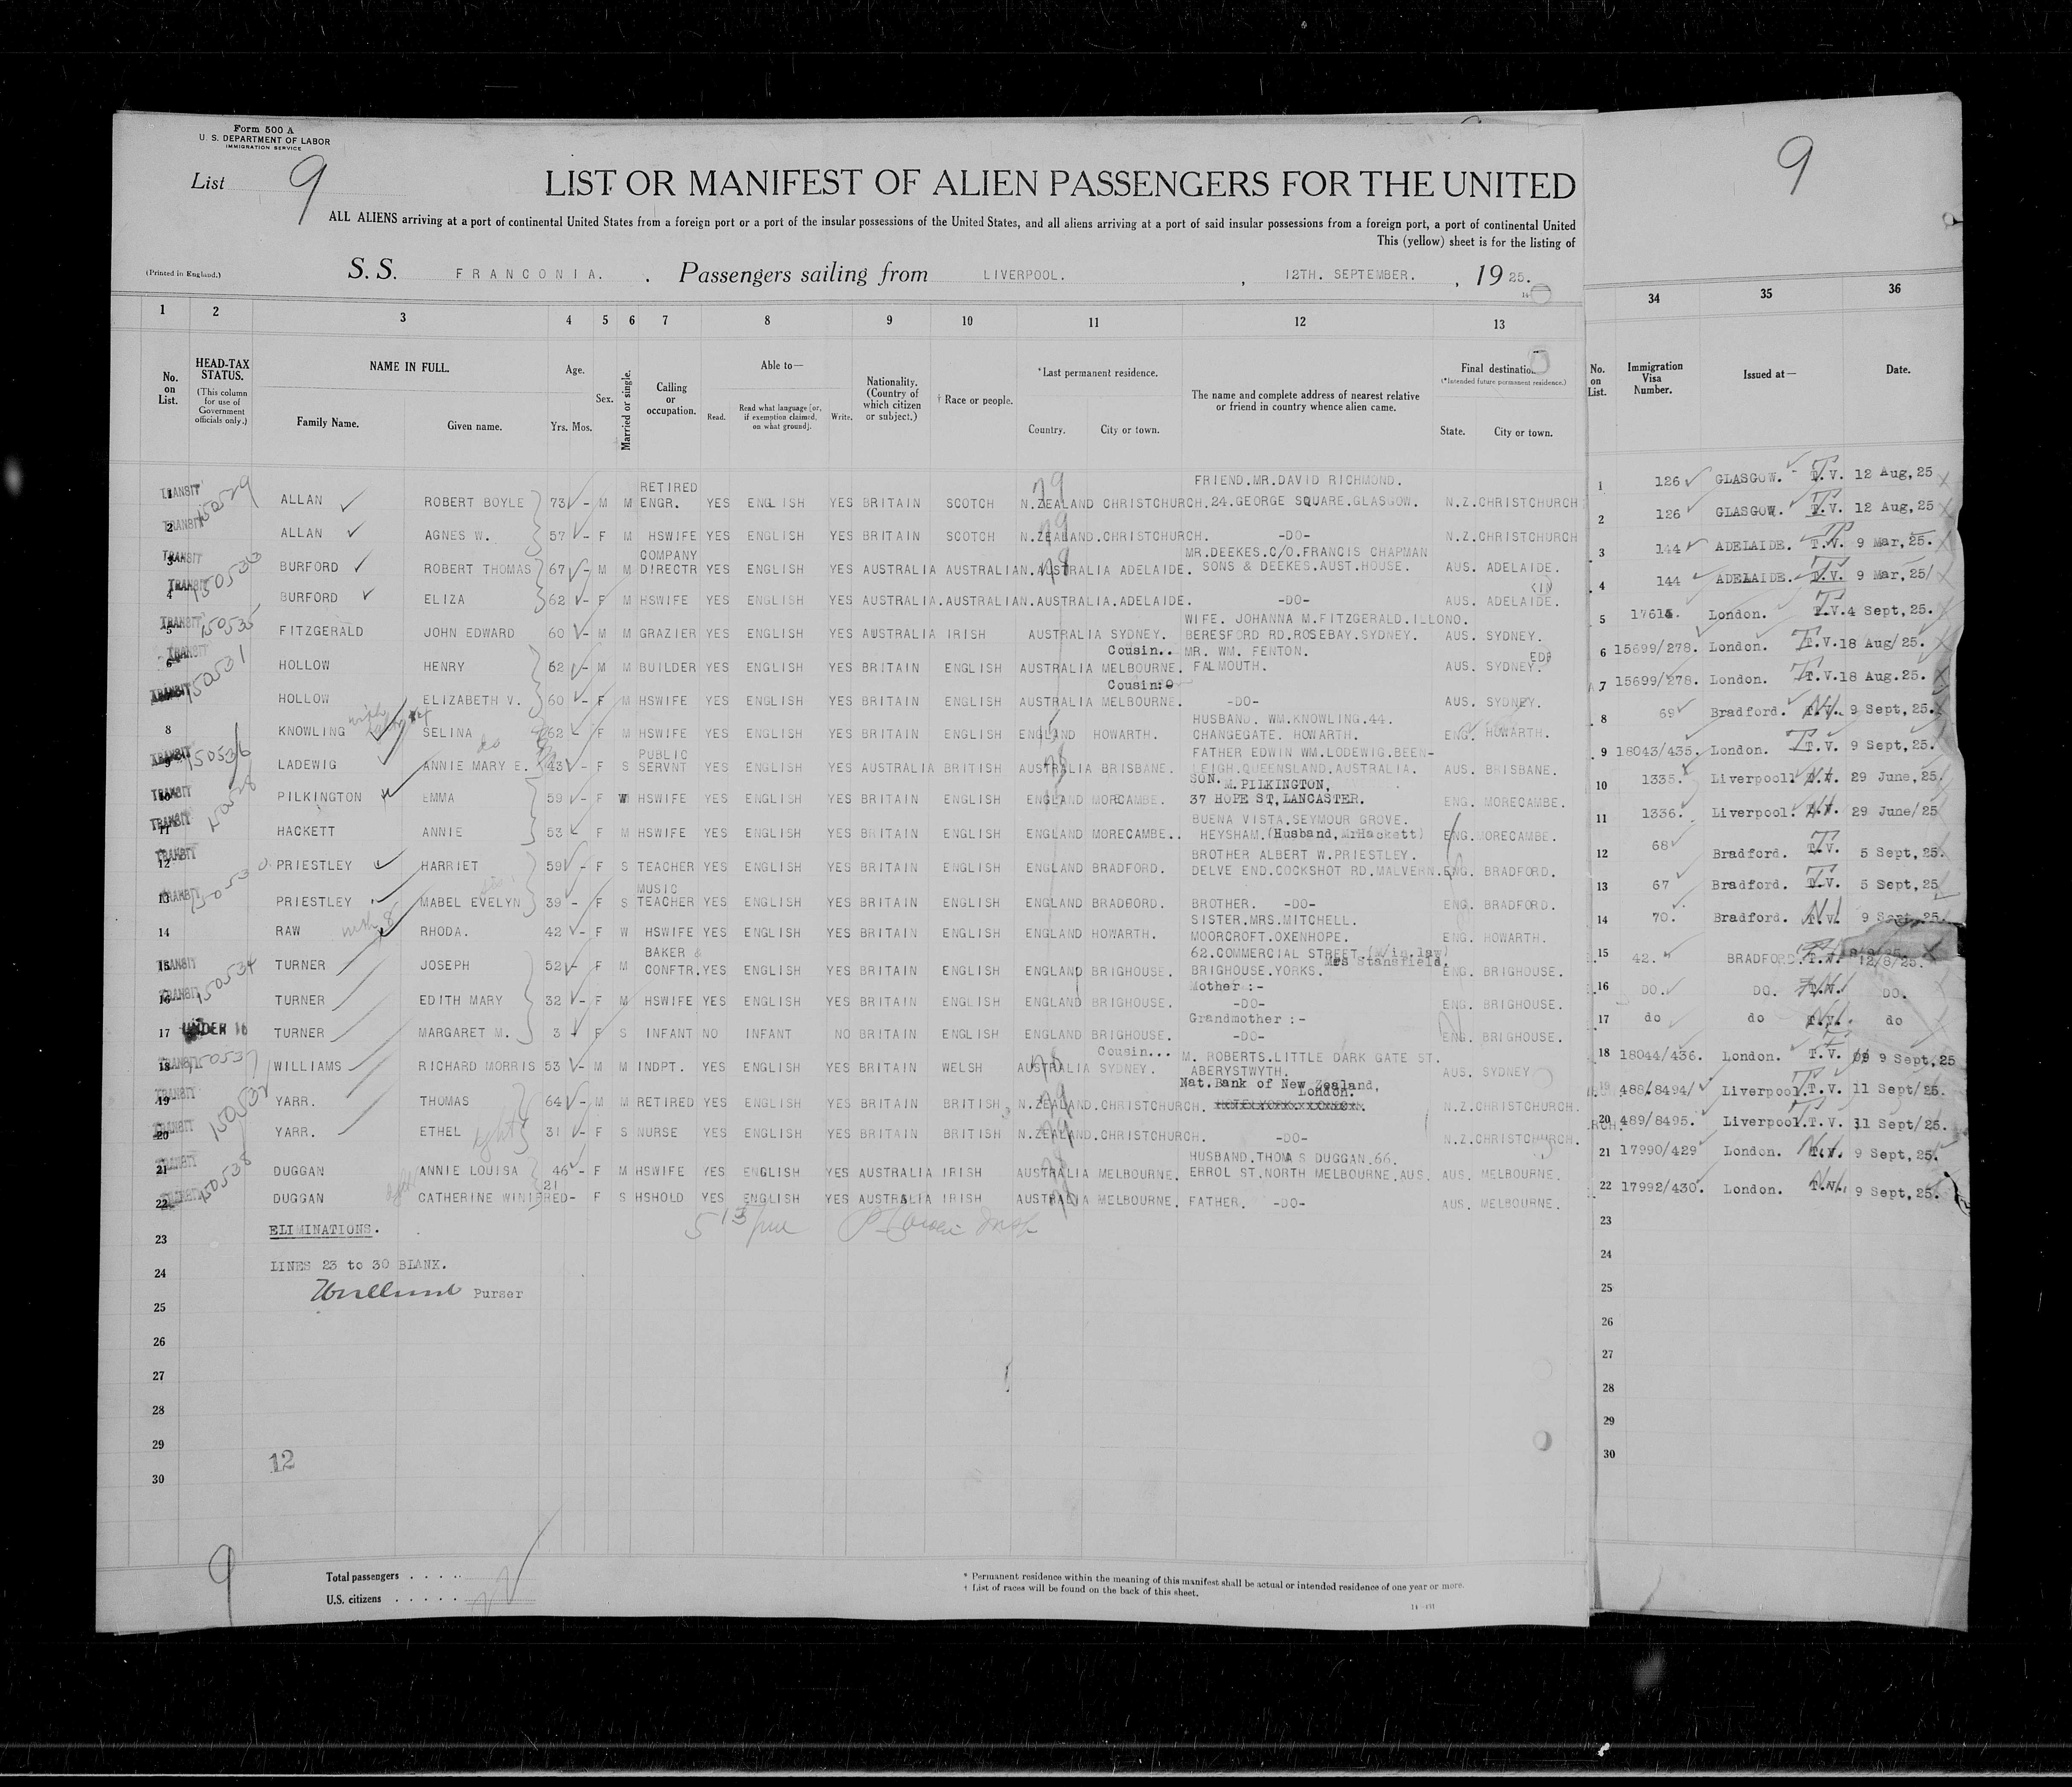 Form 500 A
U. S. DEPARTMENT OF LABOR
IMMIGRATION SERVICE
List 9
9
LIST OR MANIFEST OF ALIEN PASSENGERS FOR THE UNITED
ALL ALIENS arriving at a port of continental United States from a foreign port or a port of the insular possessions of the United States, and all aliens arriving at a port of said insular possessions from a foreign port, a port of continental United
This (yellow) sheet is for the listing of
(Printed in England.) S. S. FRANCONIA. . Passengers sailing from LIVERPOOL. , 12TH. SEPTEMBER. , 19 25.
1 2 3 4 5 6 7 8 9 10 11 12 13 34 35 36
No. on List. HEAD-TAX STATUS. (This column for use of Government officials only.) NAME IN FULL. Family Name. Given name. Age. Yrs. Mos. Sex. Married or single. Calling or occupation. Able to— Read. Read what language [or, if exemption claimed, on what ground]. Write. Nationality. (Country of which citizen or subject.) † Race or people. *Last permanent residence. Country. City or town. The name and complete address of nearest relative or friend in country whence alien came. Final destination (*Intended future permanent residence.) State. City or town. No. on List. Immigration Visa Number. Issued at— Date.
TRANSIT 150529 1 ALLAN ROBERT BOYLE 73 - M M RETIRED ENGR. YES ENGLISH YES BRITAIN SCOTCH N.ZEALAND CHRISTCHURCH. FRIEND.MR.DAVID RICHMOND. 24.GEORGE SQUARE.GLASGOW. N.Z.CHRISTCHURCH 1 126 GLASGOW. T.V. 12 Aug,25
TRANSIT 2 ALLAN AGNES W. 57 - F M HSWIFE YES ENGLISH YES BRITAIN SCOTCH N.ZEALAND.CHRISTCHURCH. -DO- N.Z.CHRISTCHURCH 2 126 GLASGOW. T.V. 12 Aug,25
TRANSIT 3 BURFORD ROBERT THOMAS 67 - M M COMPANY DIRECTR YES ENGLISH YES AUSTRALIA AUSTRALIAN.AUSTRALIA ADELAIDE. MR.DEEKES.C/O.FRANCIS CHAPMAN SONS & DEEKES.AUST.HOUSE. AUS. ADELAIDE. 3 144 ADELAIDE. T.V. 9 Mar,25.
TRANSIT 4 BURFORD ELIZA 62 - F M HSWIFE YES ENGLISH YES AUSTRALIA.AUSTRALIAN.AUSTRALIA.ADELAIDE. -DO- AUS. ADELAIDE. 4 144 ADELAIDE. T.V. 9 Mar,25/
TRANSIT 150535 5 FITZGERALD JOHN EDWARD 60 - M M GRAZIER YES ENGLISH YES AUSTRALIA IRISH AUSTRALIA SYDNEY. WIFE. JOHANNA M.FITZGERALD.ILLONO. BERESFORD RD.ROSEBAY.SYDNEY. AUS. SYDNEY. 5 London. T.V. 4 Sept,25.
TRANSIT 150531 6 HOLLOW HENRY 62 - M M BUILDER YES ENGLISH YES BRITAIN ENGLISH AUSTRALIA MELBOURNE. Cousin.. MR. WM. FENTON. FALMOUTH. AUS. SYDNEY. 6 15699/278. London. T.V. 18 Aug/25.
TRANSIT 7 HOLLOW ELIZABETH V. 60 - F M HSWIFE YES ENGLISH YES BRITAIN ENGLISH AUSTRALIA MELBOURNE. Cousin: -DO- AUS. SYDNEY. 7 15699/278. London. T.V. 18 Aug.25.
8 KNOWLING SELINA 62 - F M HSWIFE YES ENGLISH YES BRITAIN ENGLISH ENGLAND HOWARTH. HUSBAND. WM.KNOWLING.44. CHANGEGATE. HOWARTH. ENG. HOWARTH. 8 69 Bradford. T.V. 9 Sept,25.
TRANSIT 150536 9 LADEWIG ANNIE MARY E. 43 - F S PUBLIC SERVNT YES ENGLISH YES AUSTRALIA BRITISH AUSTRALIA BRISBANE. FATHER EDWIN WM.LODEWIG.BEEN-LEIGH.QUEENSLAND.AUSTRALIA. AUS. BRISBANE. 9 18043/435. London. T.V. 9 Sept,25.
TRANSIT 10 PILKINGTON EMMA 59 - F W HSWIFE YES ENGLISH YES BRITAIN ENGLISH ENGLAND MORCAMBE. SON. M.PILKINGTON, 37 HOPE ST,LANCASTER. ENG. MORECAMBE. 10 1335. Liverpool. 29 June,25.
TRANSIT 11 HACKETT ANNIE 53 F M HSWIFE YES ENGLISH YES BRITAIN ENGLISH ENGLAND MORECAMBE.. BUENA VISTA.SEYMOUR GROVE. HEYSHAM.(Husband,MrHackett) ENG.MORECAMBE. 11 1336. Liverpool. 29 June/25
TRANSIT 12 PRIESTLEY HARRIET 59 - F S TEACHER YES ENGLISH YES BRITAIN ENGLISH ENGLAND BRADFORD. BROTHER ALBERT W.PRIESTLEY. DELVE END.COCKSHOT RD.MALVERN.ENG. BRADFORD. 12 68 Bradford. T.V. 5 Sept,25.
TRANSIT 13 PRIESTLEY MABEL EVELYN 39 - F S MUSIC TEACHER YES ENGLISH YES BRITAIN ENGLISH ENGLAND BRADFORD. BROTHER. -DO- ENG. BRADFORD. 13 67 Bradford. T.V. 5 Sept,25
14 RAW with 8 RHODA. 42 - F W HSWIFE YES ENGLISH YES BRITAIN ENGLISH ENGLAND HOWARTH. SISTER.MRS.MITCHELL. MOORCROFT.OXENHOPE. ENG. HOWARTH. 14 70. Bradford. T.V. 9 Sept,25.
TRANSIT 150534 15 TURNER JOSEPH 52 - F M BAKER & CONFTR. YES ENGLISH YES BRITAIN ENGLISH ENGLAND BRIGHOUSE. 62.COMMERCIAL STREET.(m/in.law) Mrs Stansfield. BRIGHOUSE.YORKS. ENG. BRIGHOUSE. 15 42. BRADFORD. T.V. 12/8/25.
TRANSIT 16 TURNER EDITH MARY 32 - F M HSWIFE YES ENGLISH YES BRITAIN ENGLISH ENGLAND BRIGHOUSE. Mother :- -DO- ENG. BRIGHOUSE. 16 DO. DO. T.V. DO.
17 UNDER 16 TURNER MARGARET M. 3 F S INFANT NO INFANT NO BRITAIN ENGLISH ENGLAND BRIGHOUSE. Grandmother :- -DO- ENG. BRIGHOUSE. 17 do do T.V. do
TRANSIT 150537 18 WILLIAMS RICHARD MORRIS 53 - M M INDPT. YES ENGLISH YES BRITAIN WELSH AUSTRALIA SYDNEY. Cousin... M. ROBERTS.LITTLE DARK GATE ST. ABERYSTWYTH. AUS. SYDNEY 18 18044/436. London. T.V. 9 Sept,25
TRANSIT 150532 19 YARR. THOMAS 64 - M M RETIRED YES ENGLISH YES BRITAIN BRITISH N.ZEALAND.CHRISTCHURCH. Nat.Bank of New Zealand, London. N.Z.CHRISTCHURCH. 19 488/8494/ Liverpool. T.V. 11 Sept/25.
TRANSIT 20 YARR. ETHEL 31 - F S NURSE YES ENGLISH YES BRITAIN BRITISH N.ZEALAND.CHRISTCHURCH. -DO- N.Z.CHRISTCHURCH. 20 489/8495. Liverpool. T.V. 11 Sept/25.
TRANSIT 150538 21 DUGGAN ANNIE LOUISA 46 - F M HSWIFE YES ENGLISH YES AUSTRALIA IRISH AUSTRALIA MELBOURNE. HUSBAND.THOMAS DUGGAN.66. ERROL ST.NORTH MELBOURNE.AUS. AUS. MELBOURNE. 21 17990/429 London. T.V. 9 Sept,25.
22 DUGGAN CATHERINE WINIFRED 21 - F S HSHOLD YES ENGLISH YES AUSTRALIA IRISH AUSTRALIA MELBOURNE. FATHER. -DO- AUS. MELBOURNE. 22 17992/430. London. T.V. 9 Sept,25.
23 ELIMINATIONS. 23
24 LINES 23 to 30 BLANK. 24
25 Purser 25
26 26
27 27
28 28
29 29
30 12 30
9
Total passengers . . . . .
U.S. citizens . . . . .
* Permanent residence within the meaning of this manifest shall be actual or intended residence of one year or more.
† List of races will be found on the back of this sheet.